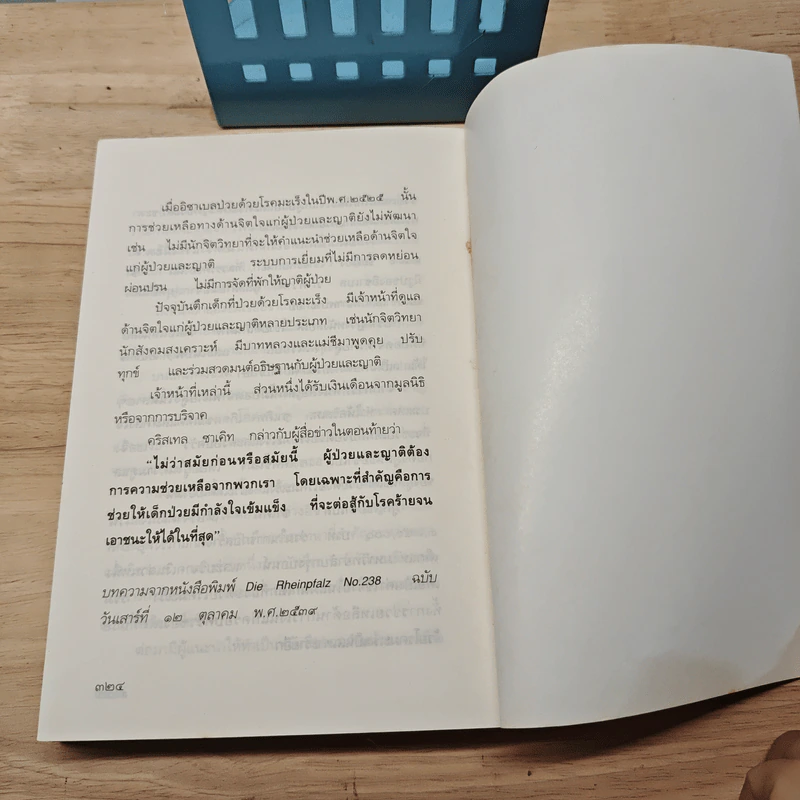 เมื่ออิซาเบลป่วยด้วยโรคมะเร็งในปีพ.ศ.๒๕๒๕ นั้น
การช่วยเหลือทางด้านจิตใจแก่ผู้ป่วยและญาติยังไม่พัฒนา
เช่น ไม่มีนักจิตวิทยาที่จะให้คำแนะนำช่วยเหลือด้านจิตใจ
แก่ผู้ป่วยและญาติ ระบบการเยี่ยมที่ไม่มีการลดหย่อน
ผ่อนปรน ไม่มีการจัดที่พักให้ญาติผู้ป่วย
ปัจจุบันตึกเด็กที่ป่วยด้วยโรคมะเร็ง มีเจ้าหน้าที่ดูแล
ด้านจิตใจแก่ผู้ป่วยและญาติหลายประเภท เช่นนักจิตวิทยา
นักสังคมสงเคราะห์ มีบาทหลวงและแม่ชีมาพูดคุย ปรับ
ทุกข์ และร่วมสวดมนต์อธิษฐานกับผู้ป่วยและญาติ
เจ้าหน้าที่เหล่านี้ ส่วนหนึ่งได้รับเงินเดือนจากมูลนิธิ
หรือจากการบริจาค
คริสเทล ซาเคิท กล่าวกับผู้สื่อข่าวในตอนท้ายว่า
"ไม่ว่าสมัยก่อนหรือสมัยนี้ ผู้ป่วยและญาติต้อง
การความช่วยเหลือจากพวกเรา โดยเฉพาะที่สำคัญคือการ
ช่วยให้เด็กป่วยมีกำลังใจเข้มแข็ง ที่จะต่อสู้กับโรคร้ายจน
เอาชนะให้ได้ในที่สุด"
บทความจากหนังสือพิมพ์ Die Rheinpfalz No.238 ฉบับ
วันเสาร์ที่ ๑๒ ตุลาคม พ.ศ.๒๕๓๙
๓๒๔